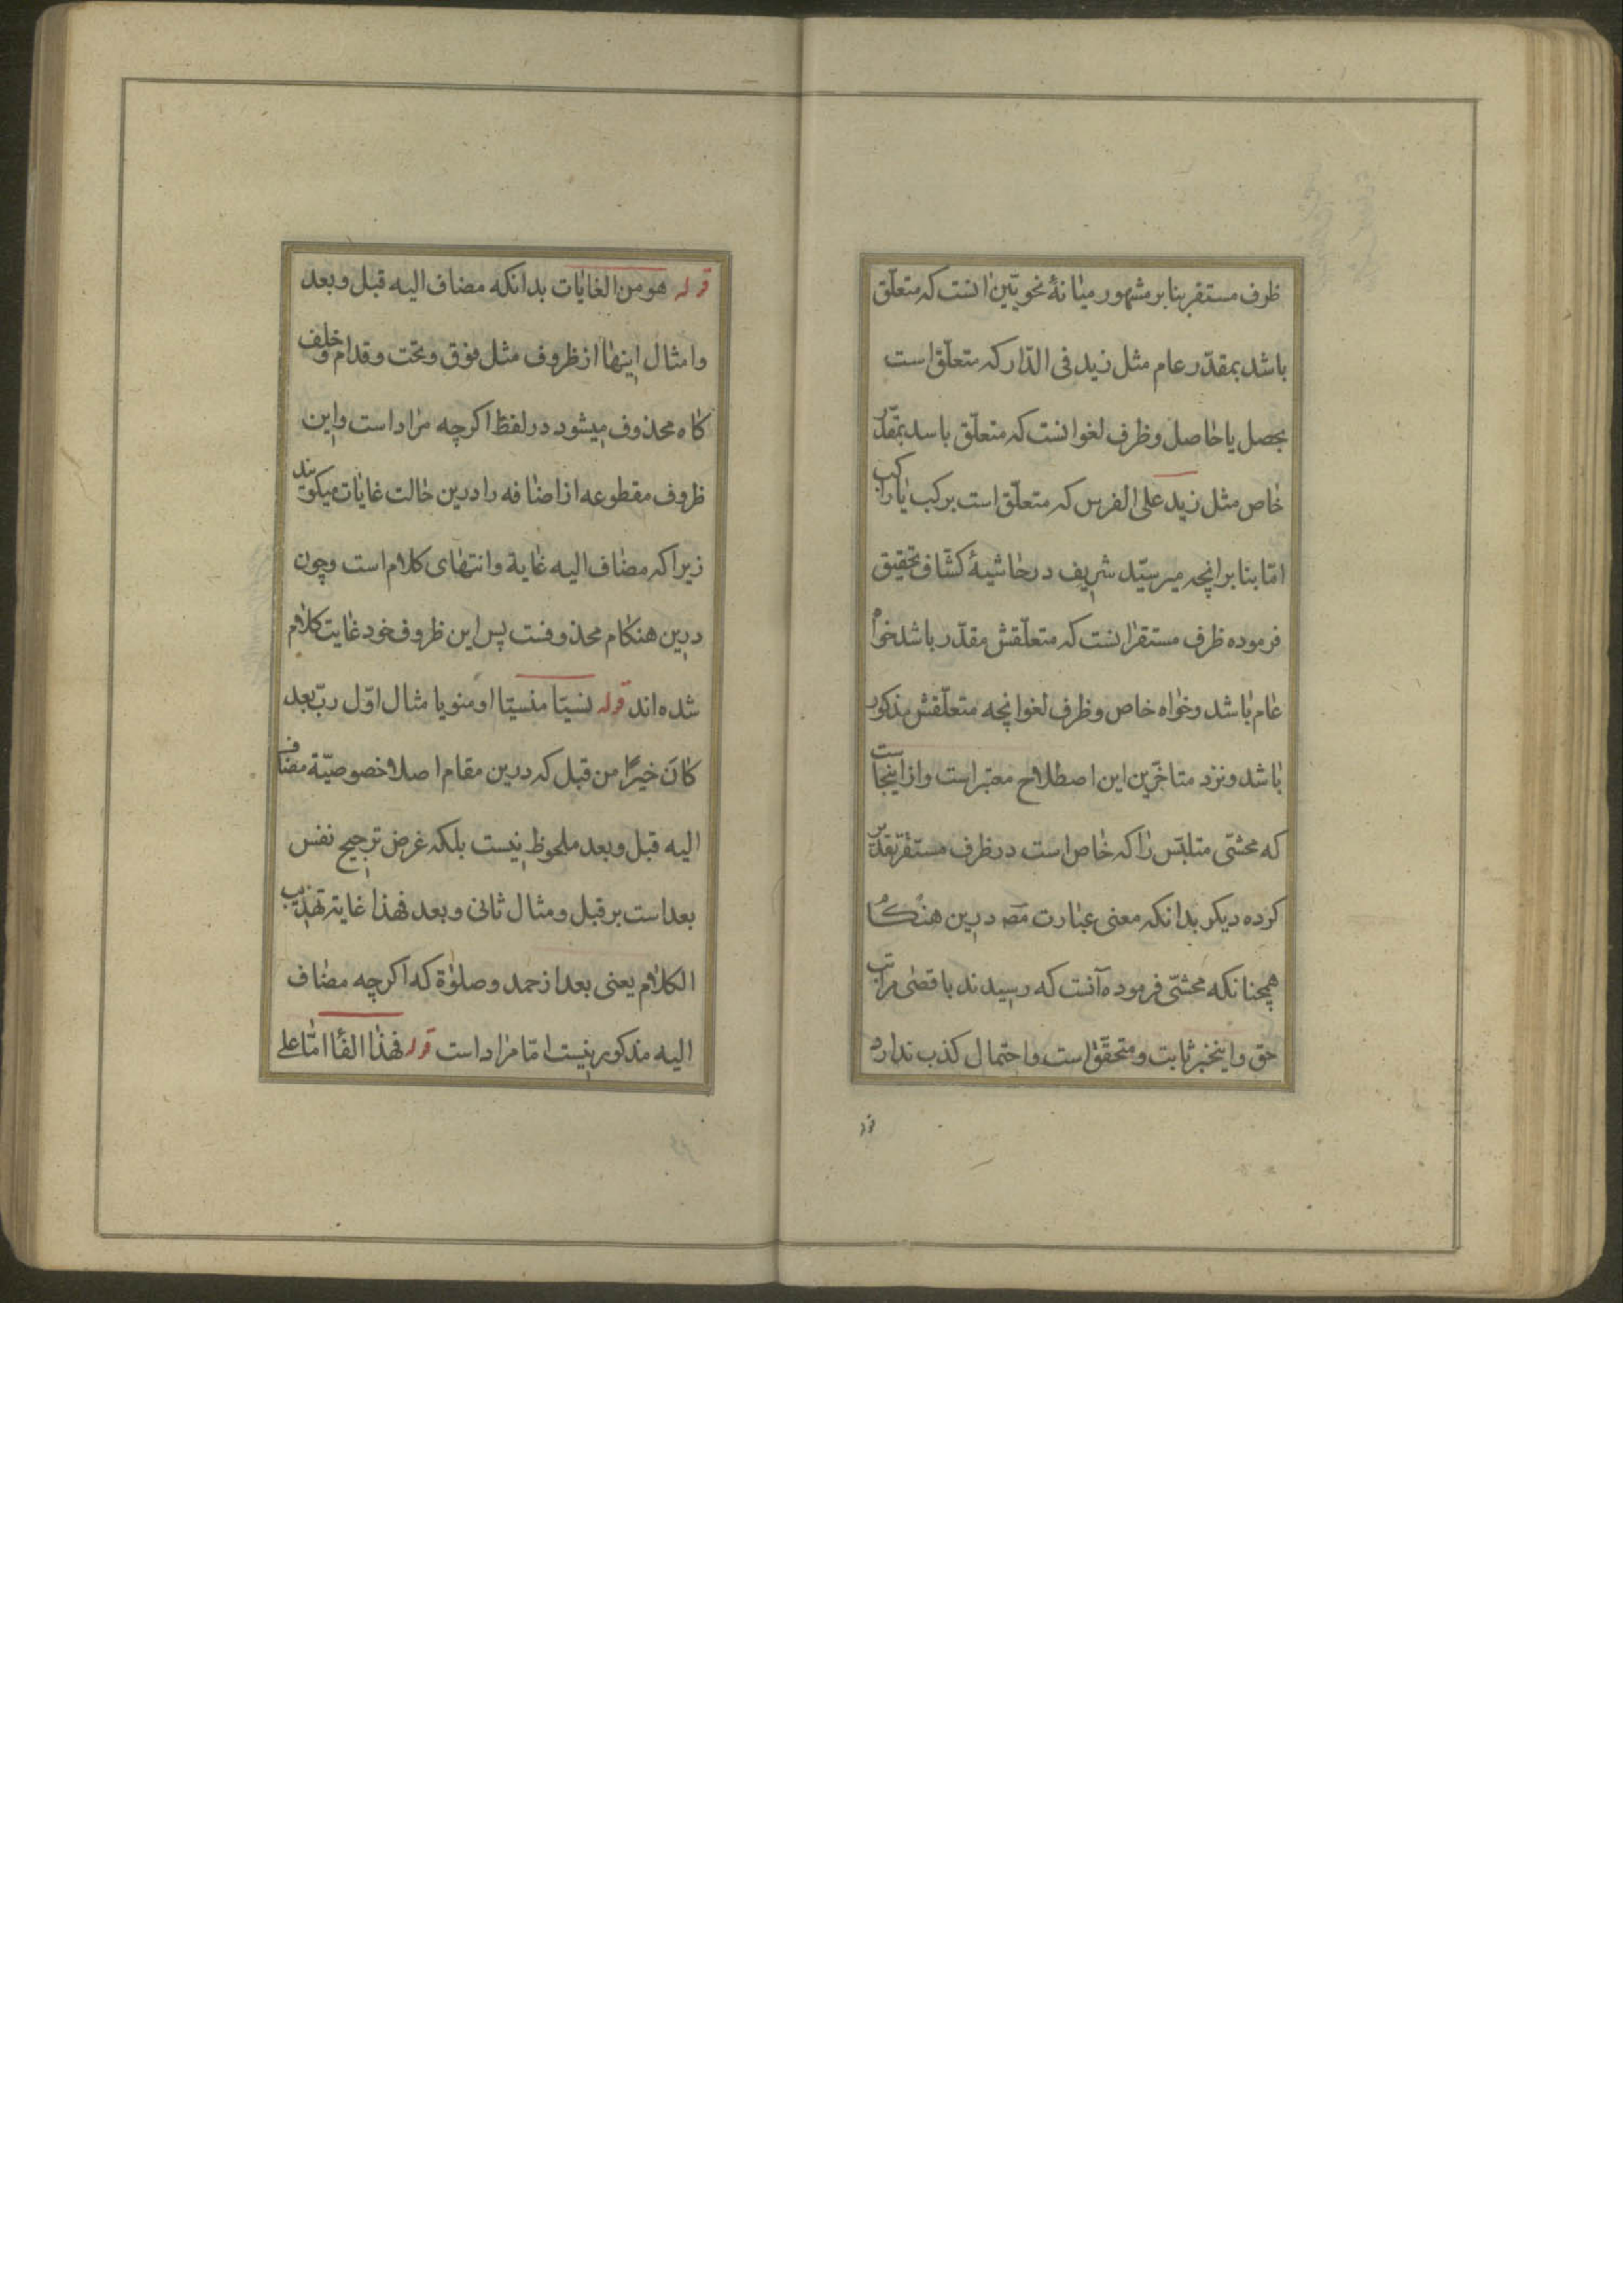 ظرف مستقر بنا بر مشهور میانهٔ نحویّین انست که متعلّق
باشد بمقدّر عام مثل زید فی الدّار که متعلّق است
بحصل یا حاصل و ظرف لغو انست که متعلّق باسد بمقدّر
خاص مثل زید علی الفرس که متعلّق است برکب یا راکب
امّا بنا بر انچه میر سیّد شریف در حاشیهٔ کشّاف تحقیق
فرموده ظرف مستقر انست که متعلّقش مقدّر باشد خواه
عام باشد و خواه خاص و ظرف لغو انچه متعلّقش مذکور
باشد و نزد متاخّرین این اصطلاح معتبر است و از اینجاست
که محشّی متلبّس را که خاص است در ظرف مستقر تقدیر
کرده دیکر بدانکه معنی عبارت مصه درین هنکام
همچنانکه محشّی فرموده آنست که رسیدند باقصی مراتب
حق و اینخبر ثابت و متحقّق است و احتمال کذب ندارد
قوله هو من الغایات بدانکه مضاف الیه قبل و بعد
و امثال اینها از ظروف مثل فوق و تحت و قدام و خلف
کاه محذوف میشود در لفظ اکرچه مراد است و این
ظروف مقطوعه از اضافه را درین حالت غایات میکویند
زیرا که مضاف الیه غایة و انتهای کلام است و چون
درین هنکام محذوفست پس این ظروف خود غایت کلام
شده اند قوله نسیّا منسیّا او منویا مثال اوّل ربّ بعد
کانَ خیرًا من قبل که درین مقام اصلا خصوصیّة مضاف
الیه قبل و بعد ملحوظ نیست بلکه غرض ترجیح نفس
بعد است بر قبل و مثال ثانی و بعد فهذا غایة تهذیب
الکلام یعنی بعد از حمد و صلوٰة که اکرچه مضاف
الیه مذکور نیست امّا مراد است قوله فهذا الفأ امّا علی